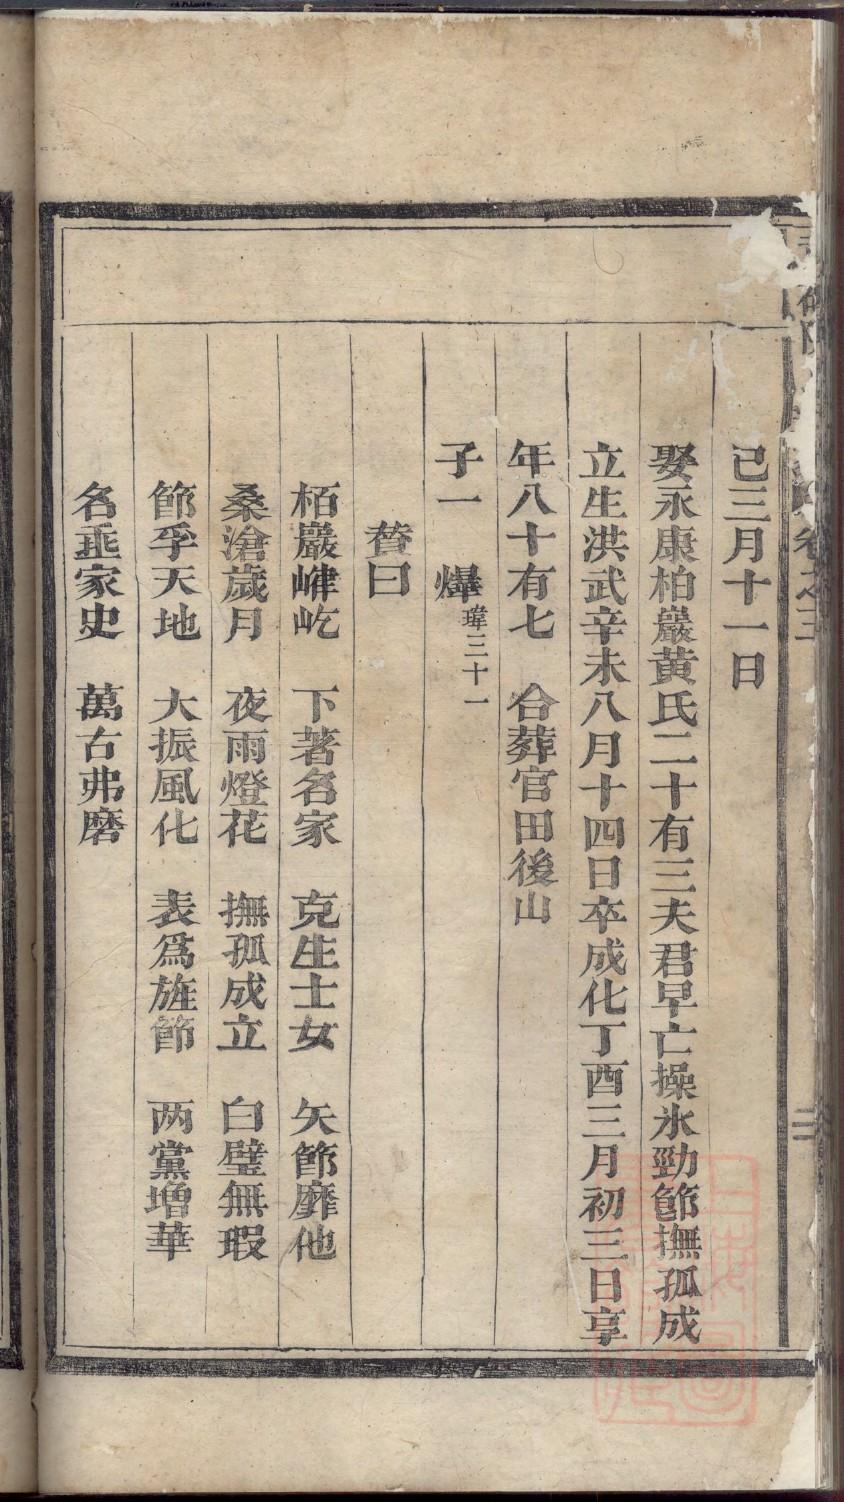 已三月十一日
娶永康柏巖黄氏二十有三夫君早亡操氷勁節撫孤成
立生洪武辛未八月十四日卒成化丁酉三月初三日享
年八十有七　合葬官田後山
子一　爗瑋三十一
賛曰
栢巖嵂屹　下著名家　克生士女　矢節靡他
桑滄歲月　夜雨燈花　撫孤成立　白璧無瑕
節孚天地　大振風化　表爲旌節　两黨增華
名垂家史　萬古弗磨
卷之三